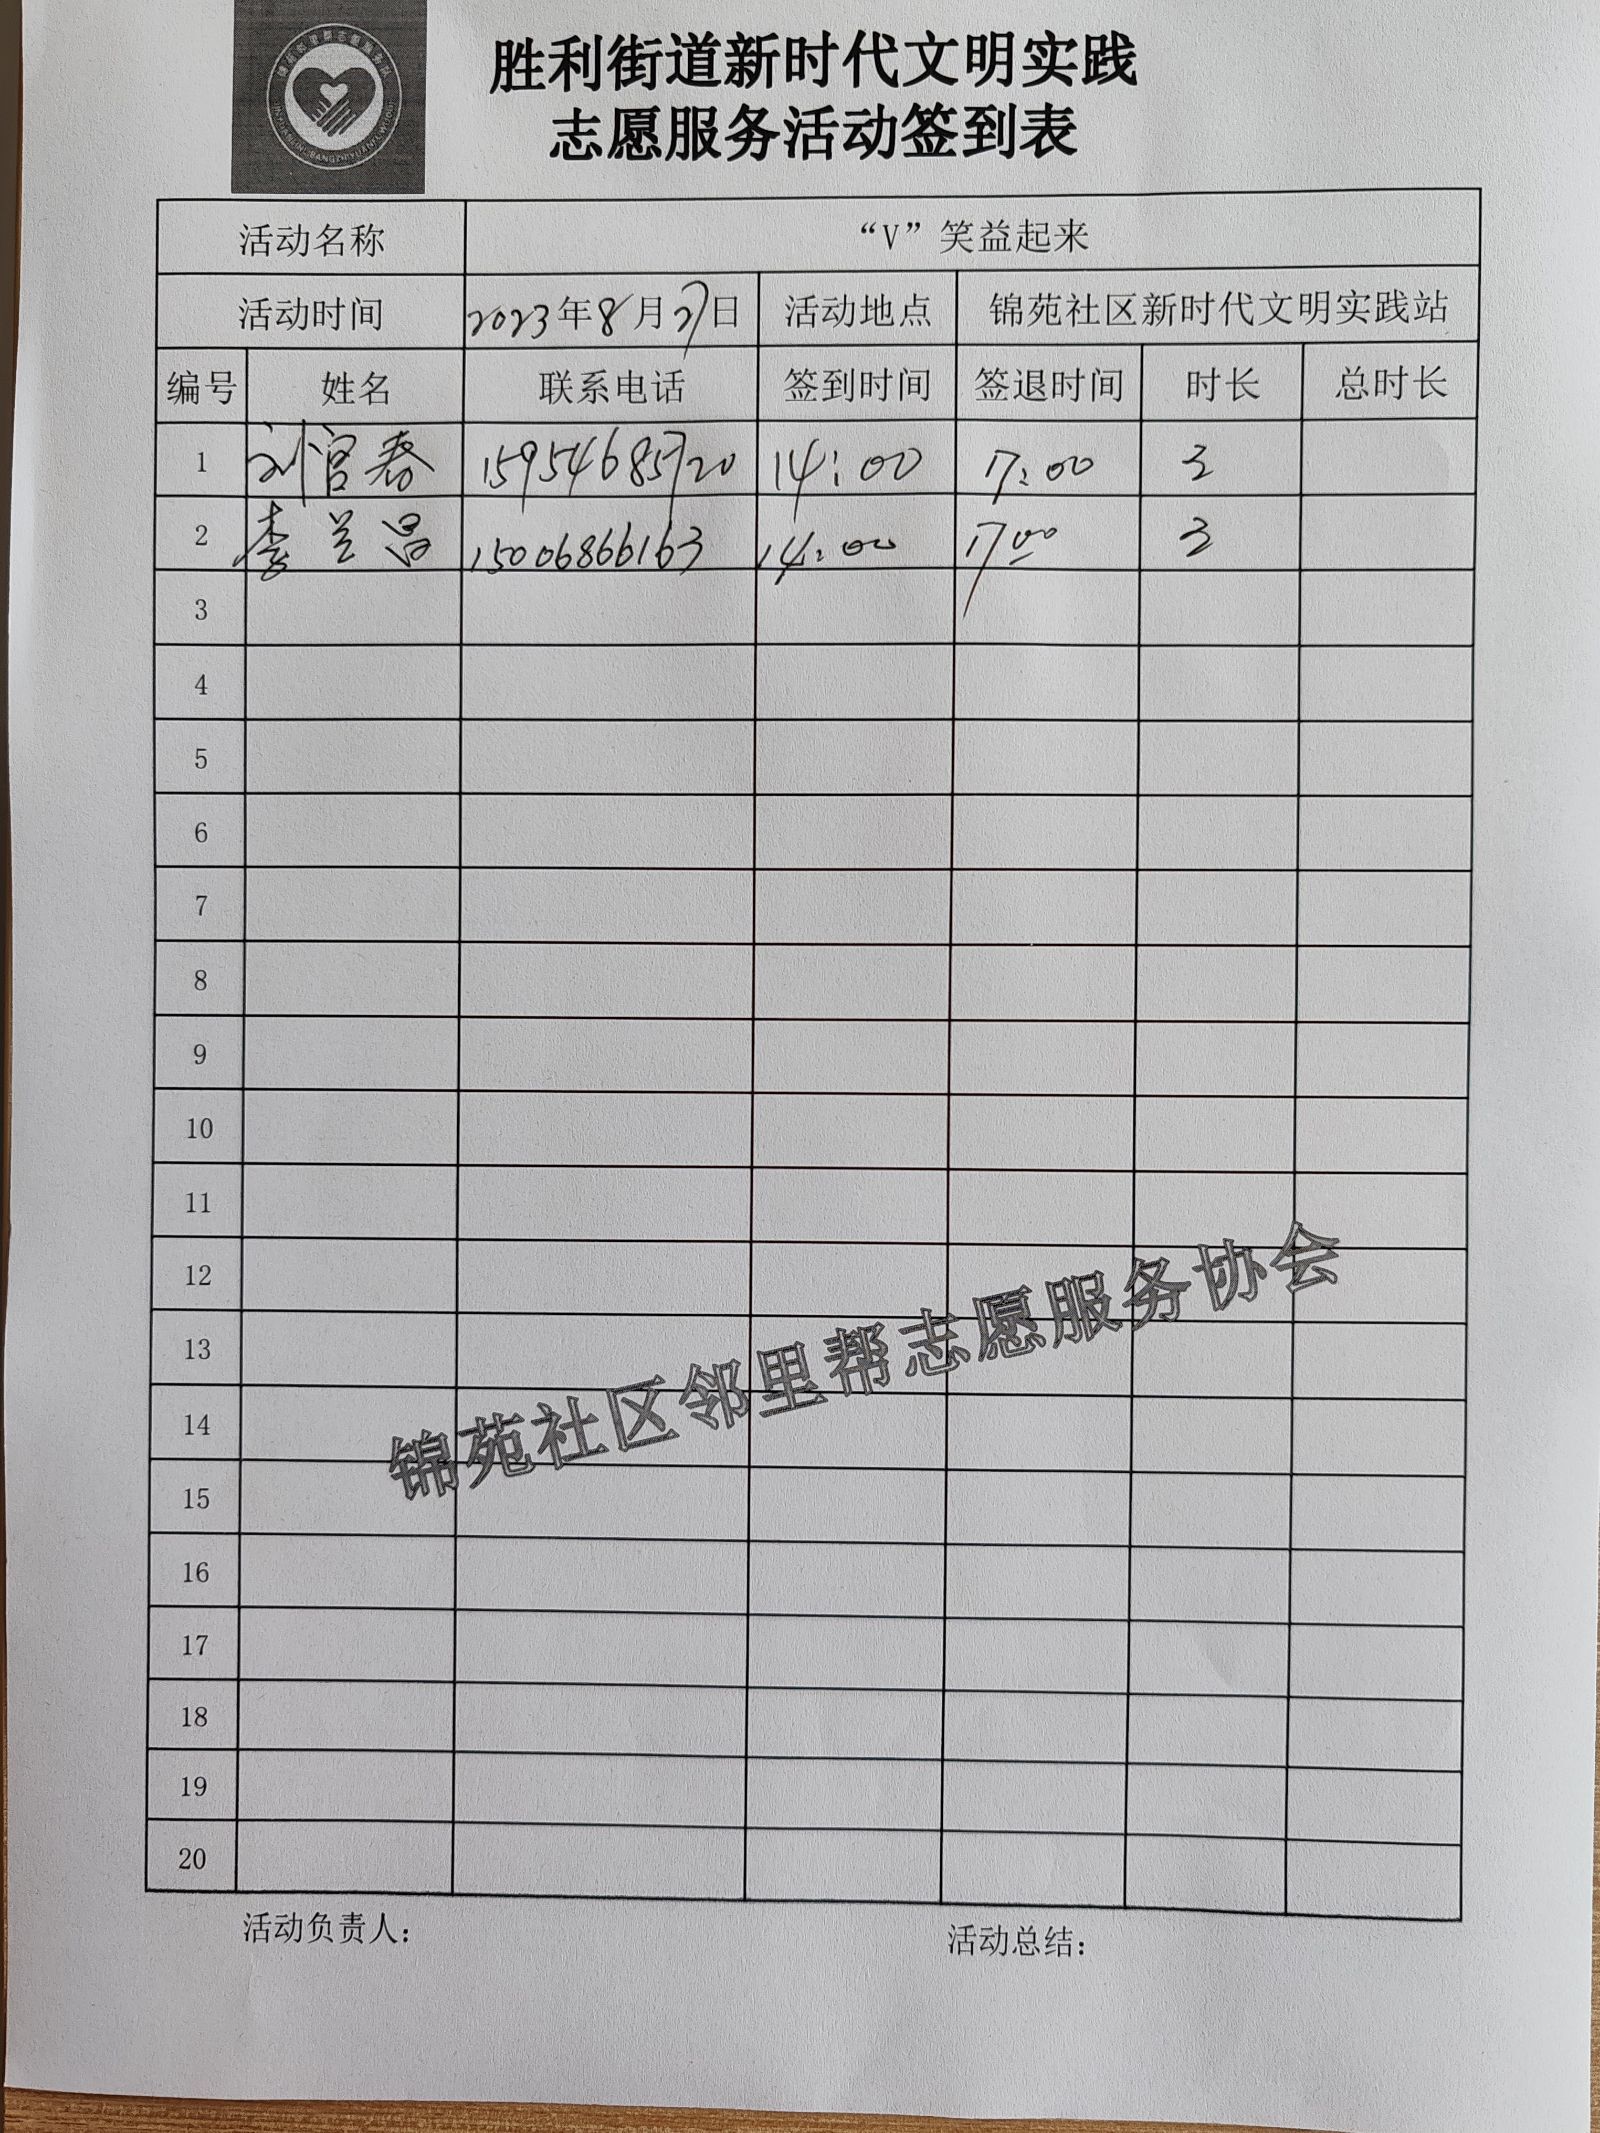 锦苑邻里帮志愿服务队
胜利街道新时代文明实践
志愿服务活动签到表
活动名称 “V”笑益起来
活动时间 2023年8月27日 活动地点 锦苑社区新时代文明实践站
编号 姓名 联系电话 签到时间 签退时间 时长 总时长
1 刘官春 15954685720 14:00 17:00 3
2 李兰昌 15006866163 14:00 17:00 3
3
4
5
6
7
8
9
10
11
12
13
14
15
16
17
18
19
20
锦苑社区邻里帮志愿服务协会
活动负责人： 活动总结：